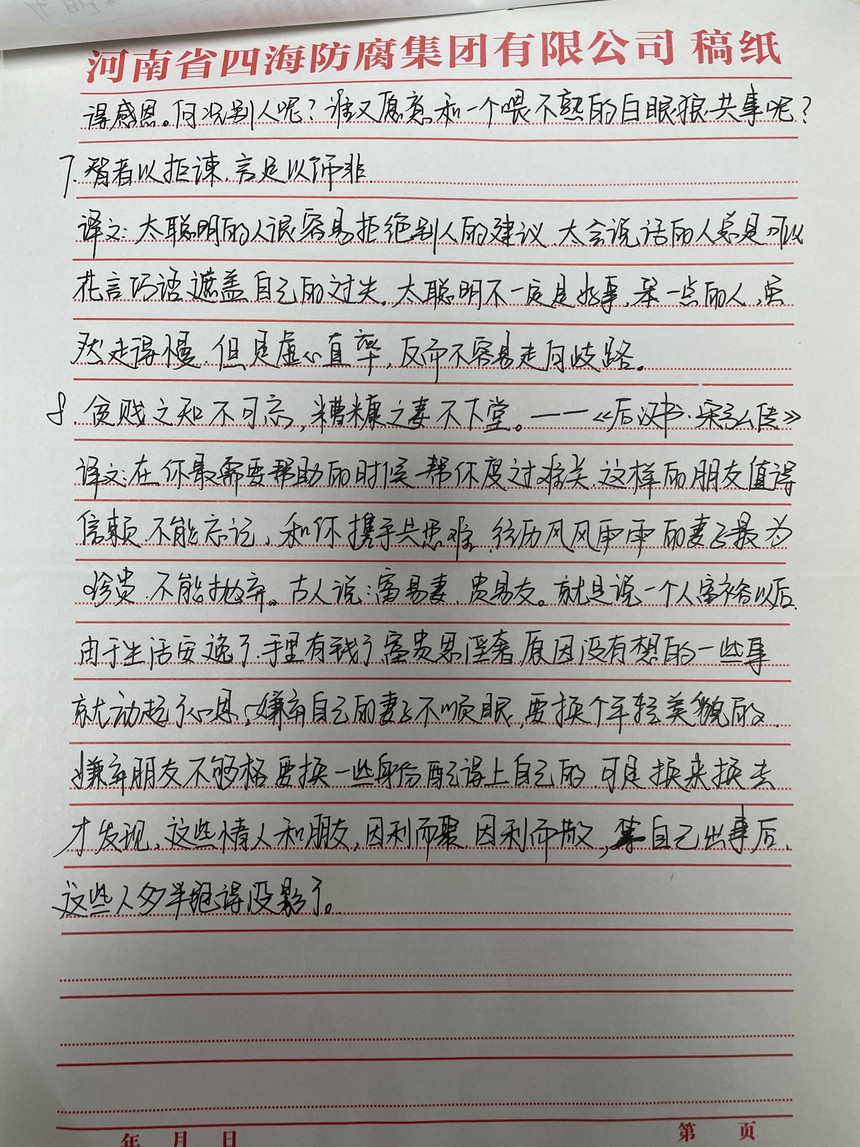 河南省四海防腐集团有限公司 稿纸
得感恩。何况别人呢？谁又愿意和一个喂不熟的白眼狼共事呢？
7. 智者以拒谏，言足以饰非.
译文：太聪明的人很容易拒绝别人的建议，太会说话的人总是可以
花言巧语遮盖自己的过失。太聪明不一定是好事，笨一点的人，虽
然走得慢，但是虚心直率，反而不容易走向歧路。
8. 贫贱之知不可忘，糟糠之妻不下堂。——《后汉书·宋弘传》
译文：在你最需要帮助的时候帮你度过难关，这样的朋友值得
信赖，不能忘记，和你携手共患难，往历风风雨雨的妻子最为
珍贵，不能抛弃。古人说：富易妻，贵易友。就是说一个人富裕以后，
由于生活安逸了，手里有钱了，富贵思淫奢，原因没有想的一些事
就动起了心思，嫌弃自己的妻子不顺眼，要换个年轻美貌的，
嫌弃朋友不够格要换一些身份配得上自己的，可是换来换去
才发现，这些情人和朋友，因利而聚，因利而散，等自己出事后，
这些人多半跑得没影了。
年 月 日
第 页